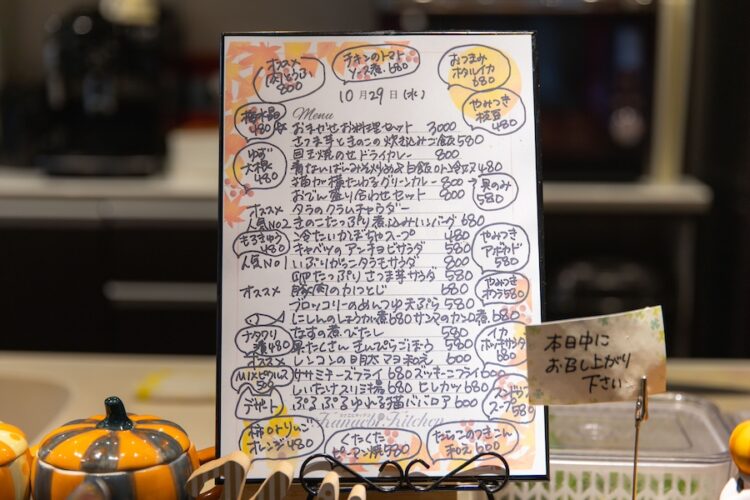 オススメ
肉どうふ
800
チキンのトマト
煮込 680
おつまみ
ホタルイカ
680
10月29日(水)
やみつき
枝豆
480
梅水晶
480
Menu
おまかせお料理セット 3000
さつま芋ときのこの炊き込みご飯 580
目玉焼のせドライカレー 800
480
ゆず
大根
480
猫が横たわるグリーンカレー 800
おでん盛り合わせセット 800
580
オススメ タラのクラムチャウダー
人気No2 きのこたっぷり煮込みハンバーグ 680
もろきゅう
480
冷たいかぼちゃスープ 480
キャベツのアンチョビサラダ 580
やみつき
アボカド
580
人気No1 いぶりがっこタラモサラダ 800
卵たっぷりさつま芋サラダ 580
オススメ 豚肉のかつとじ 680
やみつき
オクラ 580
ブロッコリーのめんつゆ天ぷら 580
にしんのしょうが煮 680 サンマのカンロ煮 680
ナタワリ
漬 480
なすの煮びたし 580
果たくさんきんぴらごぼう 580
イカ
680
オススメ レンコンの明太マヨ和え 600
Mixピクルス
500
ササミチーズフライ 680 ズッキーニフライ 600
しいたけスリミ揚 680 ヒレカツ 680
スープ 580
デザート ぷるぷるゆれる猫ババロア 600
Kanacbi Kitchen
柿のトりんご
オレンジ 480
くたくた
ピーマン焼 580
たらこのつきこん
和え 600
本日中に
お召し上がり
下さい